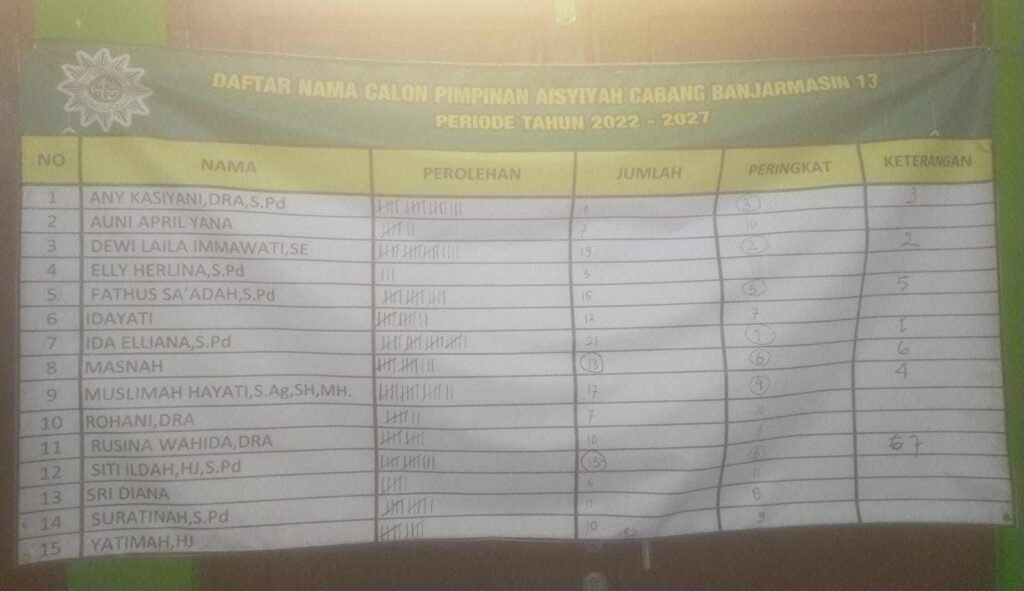 DAFTAR NAMA CALON PIMPINAN AISYIYAH CABANG BANJARMASIN 13
PERIODE TAHUN 2022 - 2027
NO NAMA PEROLEHAN JUMLAH PERINGKAT KETERANGAN
1 ANY KASIYANI,DRA,S.Pd 18 3 3
2 AUNI APRIL YANA 7 10
3 DEWI LAILA IMMAWATI,SE 19 2 2
4 ELLY HERLINA,S.Pd 3
5 FATHUS SA'ADAH,S.Pd 15 5 5
6 IDAYATI 12 7
7 IDA ELLIANA,S.Pd 21 1 1
8 MASNAH 13 6 6
9 MUSLIMAH HAYATI,S.Ag,SH,MH. 17 4 4
10 ROHANI,DRA 7
11 RUSINA WAHIDA,DRA 10 9
12 SITI ILDAH,HJ,S.Pd 6 7
13 SRI DIANA 6 11
14 SURATINAH,S.Pd 11 8
15 YATIMAH,HJ 10 9